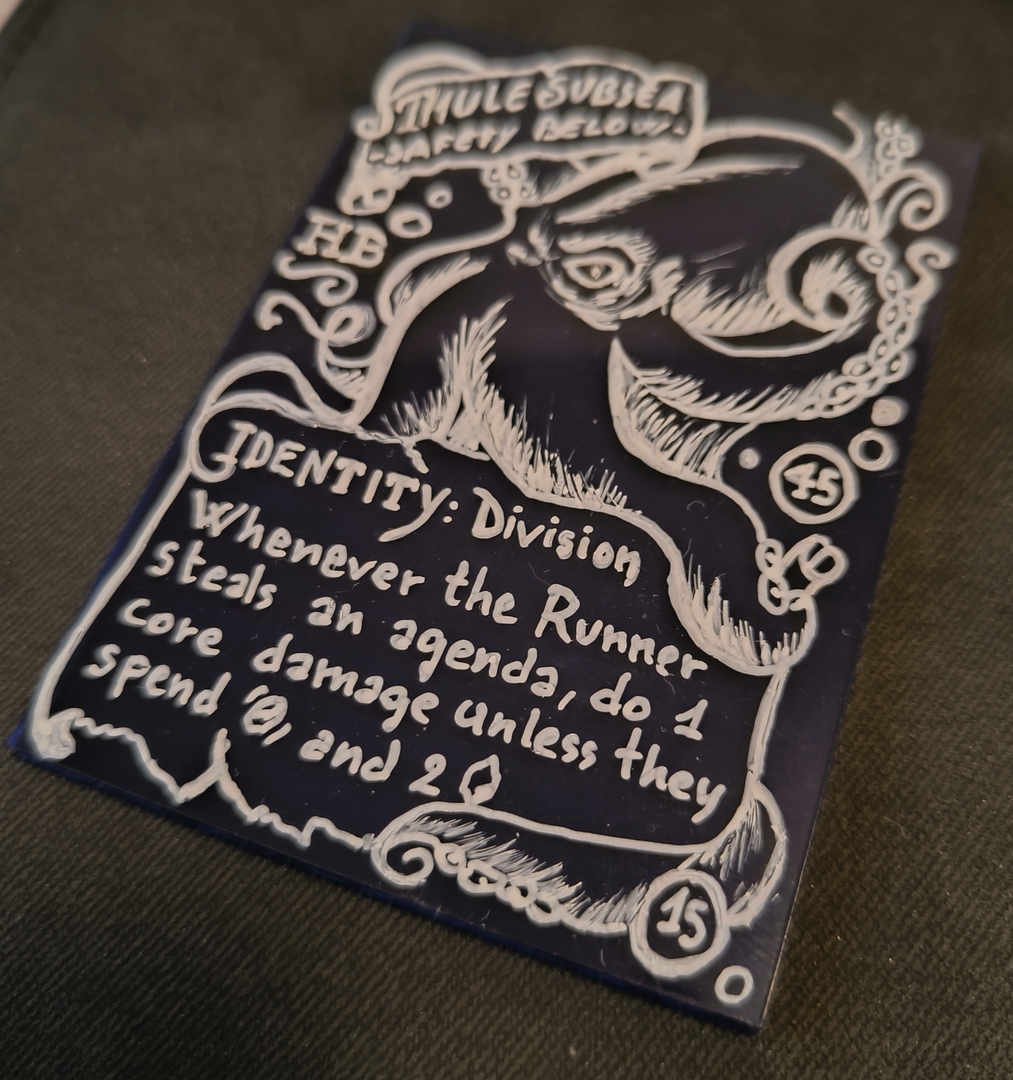 THULE SUBSEA
-SAFETY BELOW-
HB
45
IDENTITY: Division
Whenever the Runner
steals an agenda, do 1
core damage unless they
spend
and 2
15